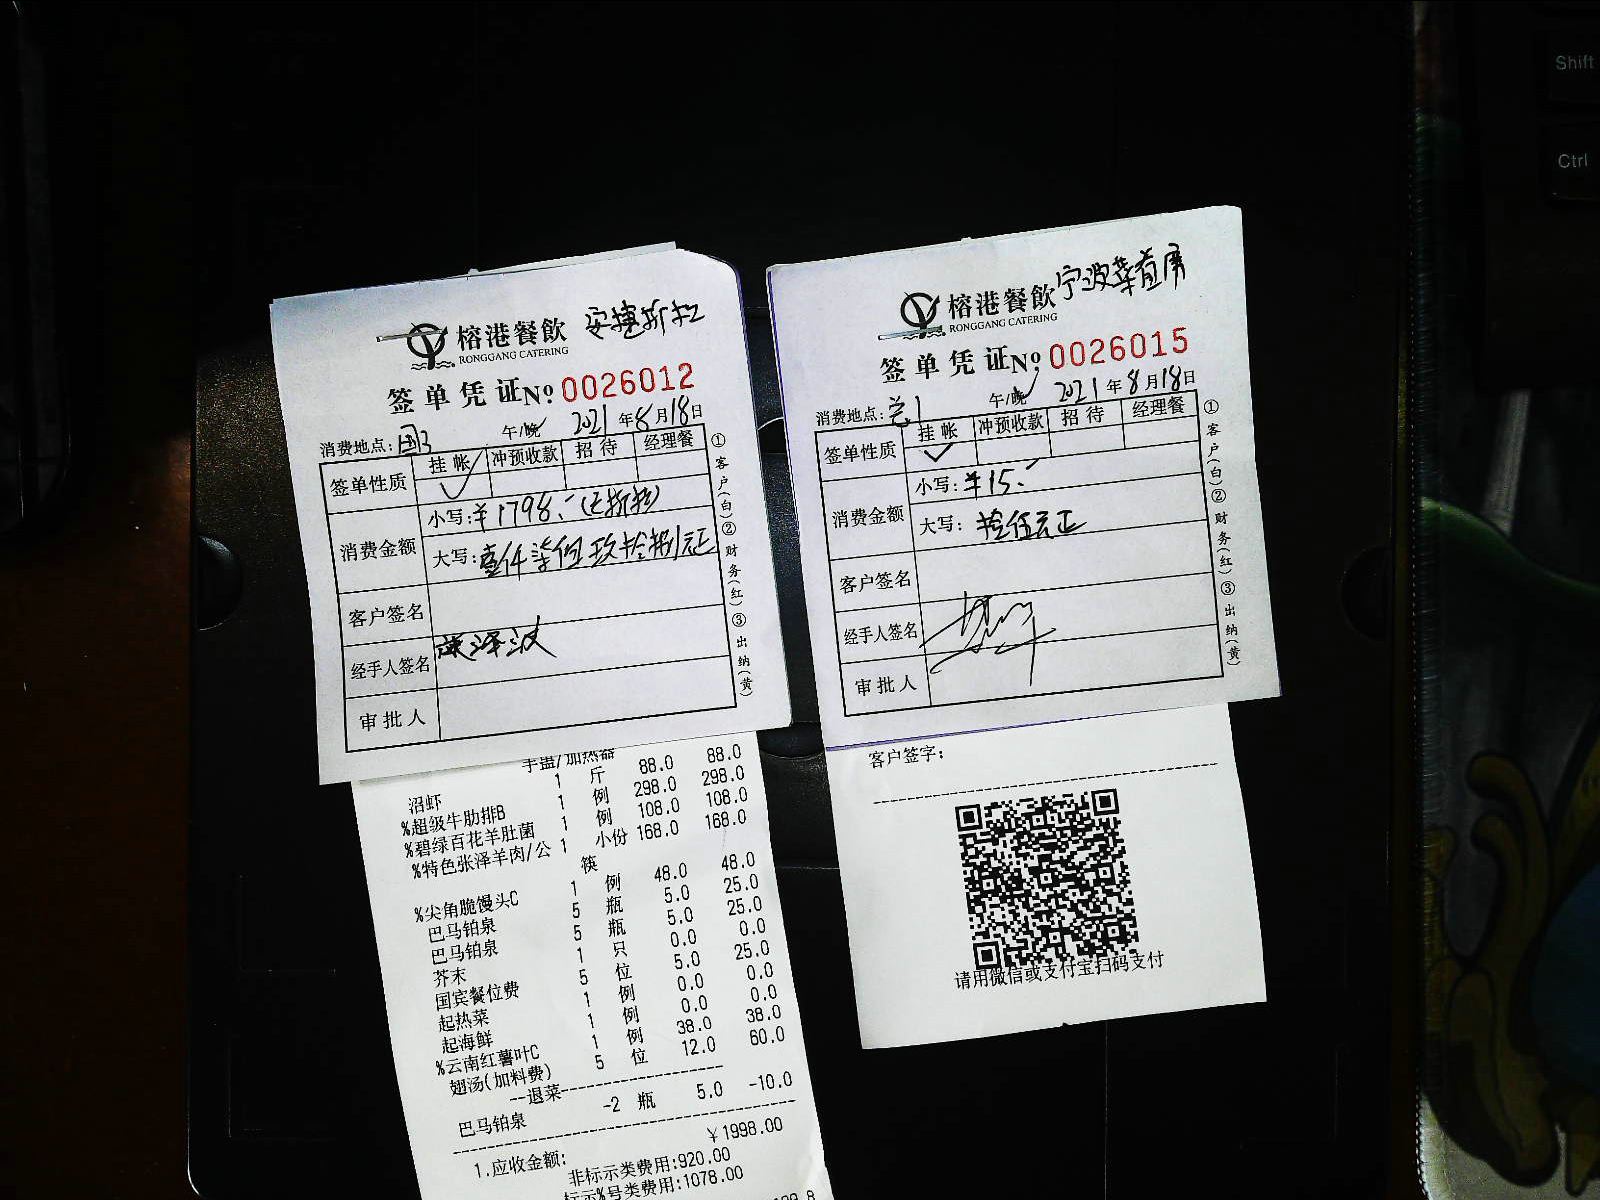 Shift
Ctrl
安捷斯拉
榕港餐飲
RONGGANG CATERING
签单凭证No. 0026012
消费地点: 国3 午/晚 2021年8月18日
签单性质 挂帐 冲预收款 招待 经理餐
消费金额
小写: ¥1798.-
大写: 壹仟柒佰玖拾捌元正
客户签名
经手人签名
审批人
①客户(白)②财务(红)③出纳(黄)
手盅/加热器 88.0
沼虾 1 斤 88.0 298.0
%超级牛肋排B 1 例 298.0 108.0
%碧绿百花羊肚菌 1 例 108.0 168.0
%特色张泽羊肉/公 1 小份 168.0
筷
%尖角脆馒头C 1 例 48.0 48.0
巴马铂泉 5 瓶 5.0 25.0
巴马铂泉 5 瓶 5.0 25.0
芥末 1 只 0.0 0.0
国宾餐位费 5 位 5.0 25.0
起热菜 1 例 0.0 0.0
起海鲜 1 例 0.0 0.0
%云南红薯叶C 1 例 38.0 38.0
翅汤(加料费) 5 位 12.0 60.0
--退菜--
巴马铂泉 -2 瓶 5.0 -10.0
1.应收金额: ¥1998.00
非标示类费用:920.00
标示%号类费用:1078.00
宁波菜首席
榕港餐飲
RONGGANG CATERING
签单凭证No. 0026015
消费地点: 兰1 午/晚 2021年8月18日
签单性质 挂帐 冲预收款 招待 经理餐
消费金额
小写: ¥15.-
大写: 拾伍元正
客户签名
经手人签名
审批人
①客户(白)②财务(红)③出纳(黄)
客户签字:
请用微信或支付宝扫码支付